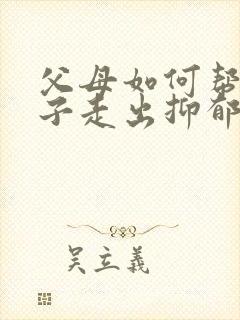 父母如何帮
子走出抑郁
吴立义